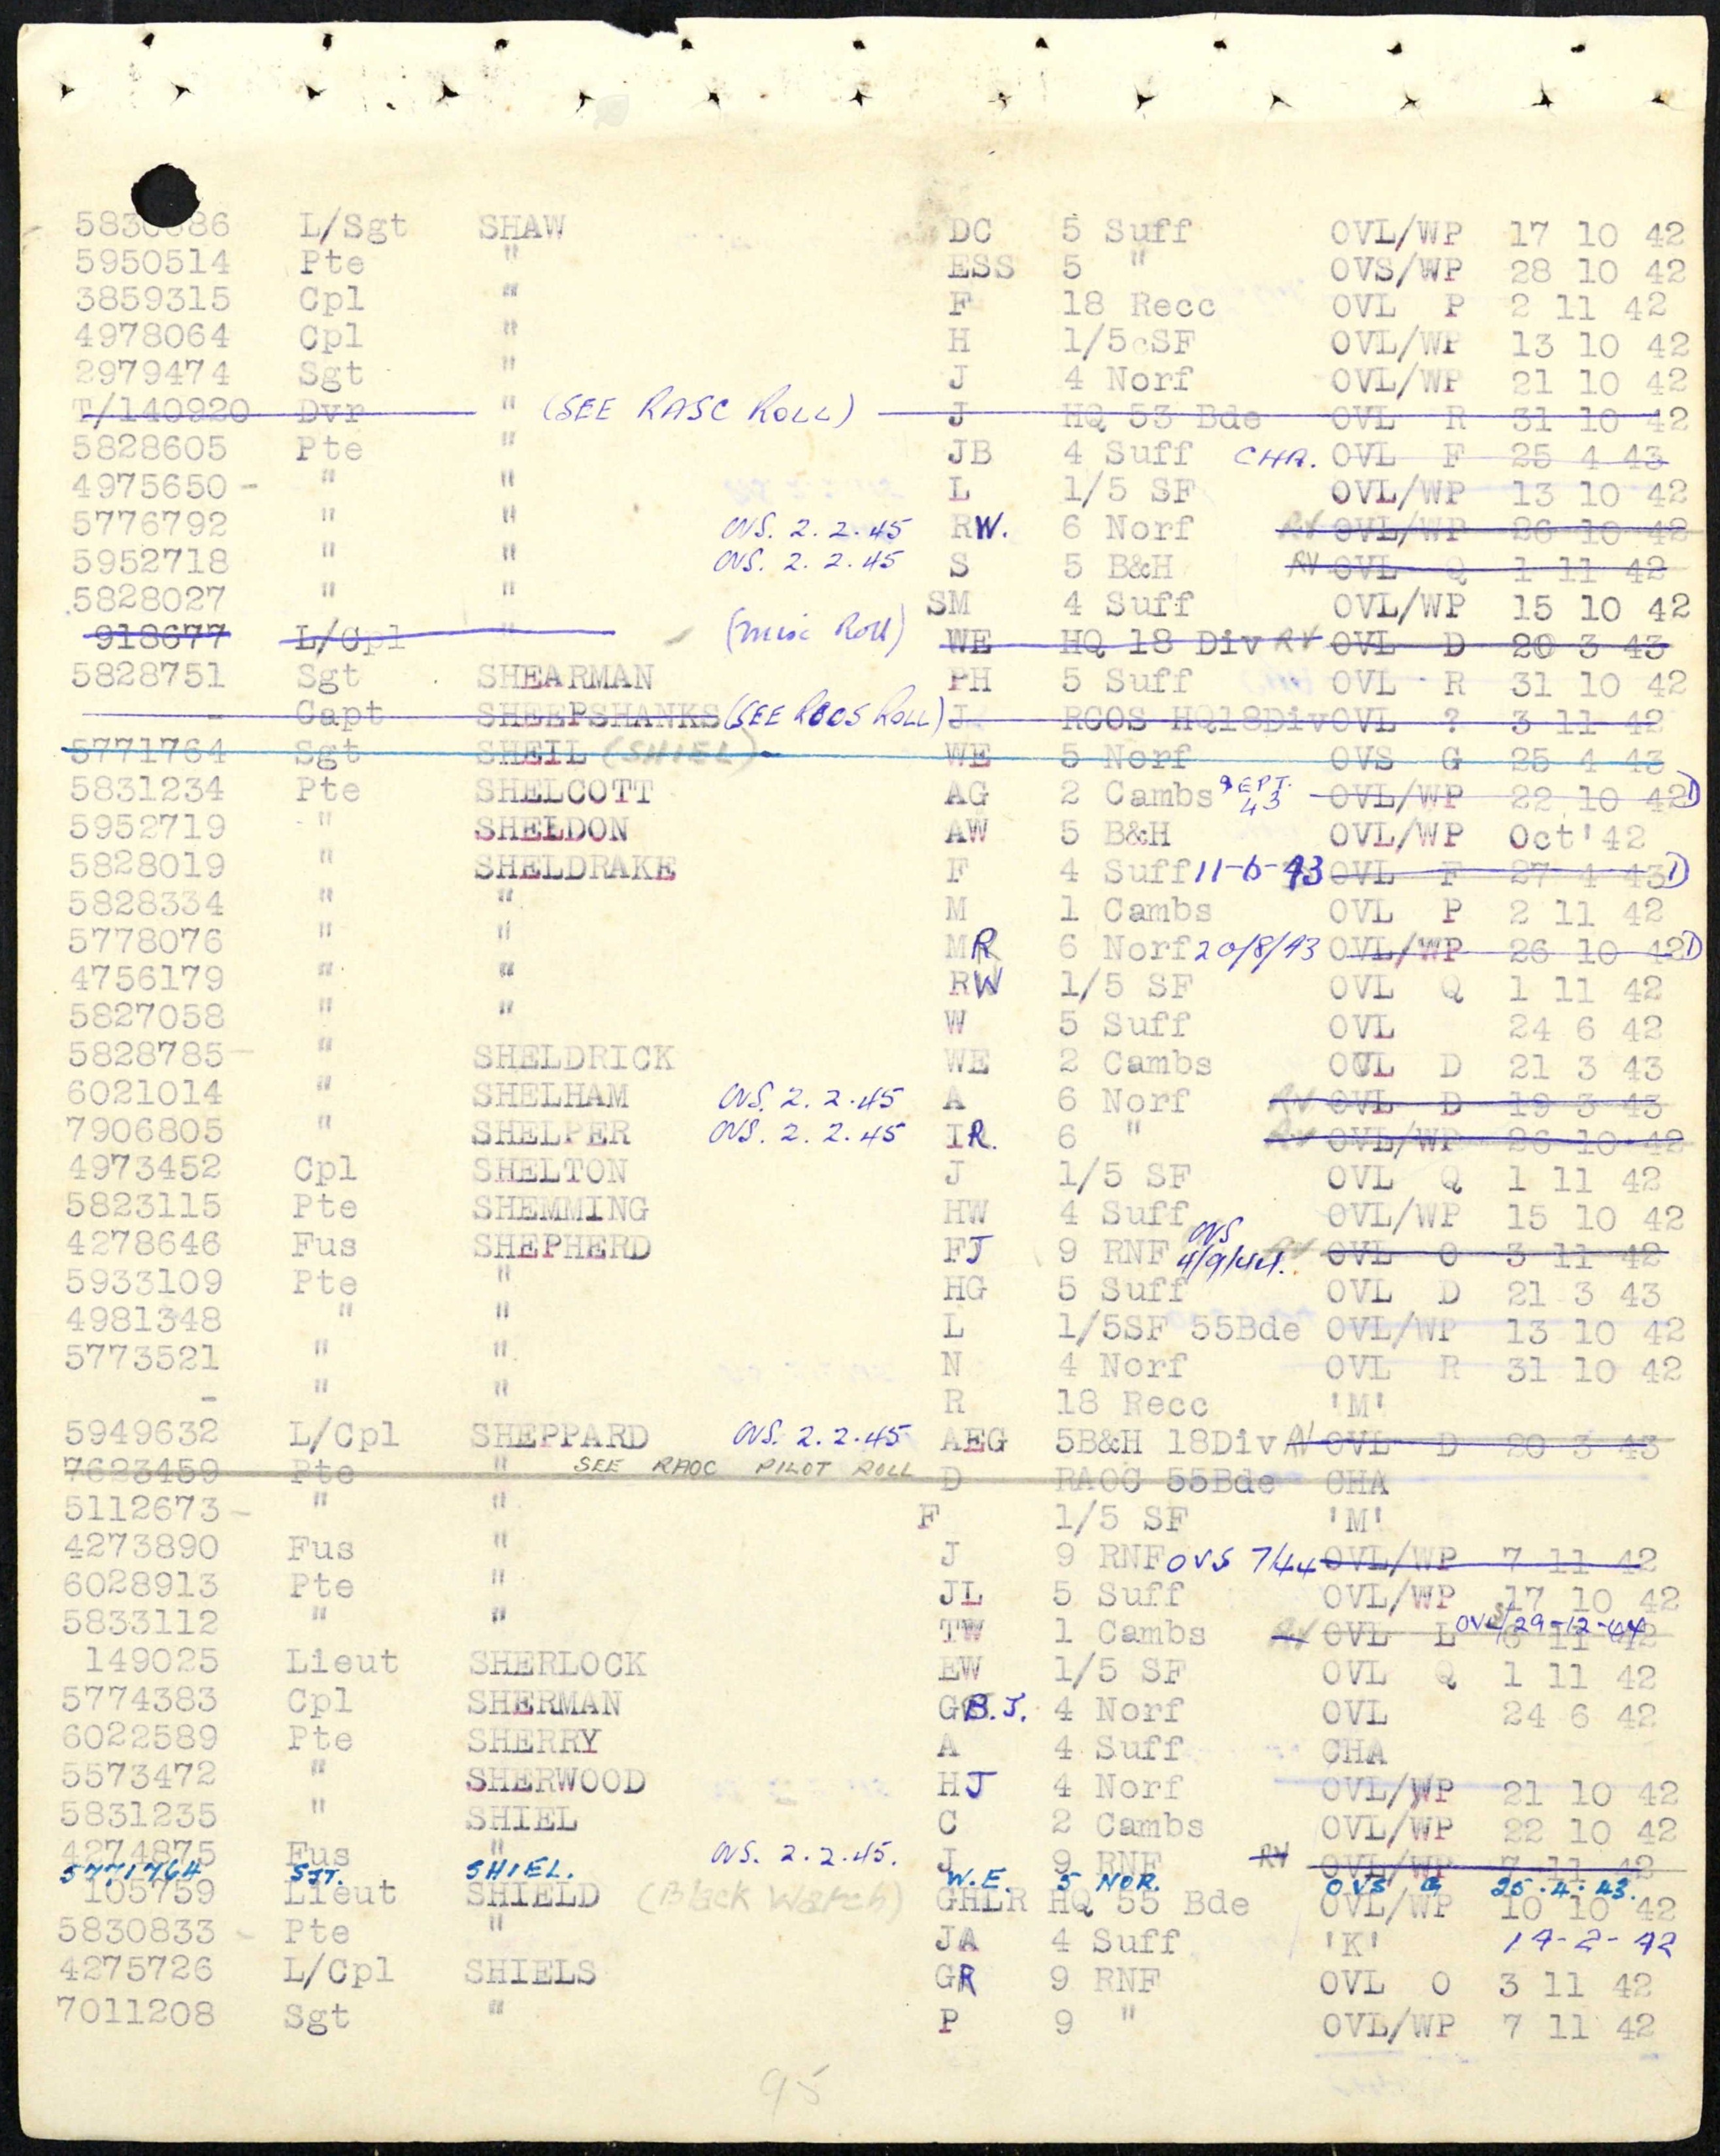 5830086 L/Sgt SHAW DC 5 Suff OVL/WP 17 10 42
5950514 Pte " ESS 5 " OVS/WP 28 10 42
3859315 Cpl " F 18 Recc OVL P 2 11 42
4978064 Cpl " H 1/5 SF OVL/WP 13 10 42
2979474 Sgt " J 4 Norf OVL/WP 21 10 42
T/140920 Dvr " (SEE RASC ROLL) J HQ 53 Bde OVL R 31 10 42
5828605 Pte " JB 4 Suff CHA. OVL F 25 4 43
4975650 - " " L 1/5 SF OVL/WP 13 10 42
5776792 " " OVS. 2.2.45 RW. 6 Norf RV OVL/WP 26 10 42
5952718 " " OVS. 2.2.45 S 5 B&H RV OVL Q 1 11 42
5828027 " " SM 4 Suff OVL/WP 15 10 42
918677 L/Cpl " (misc Roll) WE HQ 18 Div RV OVL D 20 3 43
5828751 Sgt SHEARMAN PH 5 Suff OVL R 31 10 42
- Capt SHEEPSHANKS (SEE RCOS ROLL) J RCOS HQ18Div OVL ? 3 11 42
5771764 Sgt SHEIL (SHIEL) WE 5 Norf OVS G 25 4 43
5831234 Pte SHELCOTT AG 2 Cambs SEPT. 43 OVL/WP 22 10 42 D
5952719 " SHELDON AW 5 B&H OVL/WP Oct'42
5828019 " SHELDRAKE F 4 Suff 11-6-43 OVL F 27 4 43 D
5828334 " " M 1 Cambs OVL P 2 11 42
5778076 " " MR 6 Norf 20/8/43 OVL/WP 26 10 42 D
4756179 " " RW 1/5 SF OVL Q 1 11 42
5827058 " " W 5 Suff OVL 24 6 42
5828785 - " SHELDRICK WE 2 Cambs OVL D 21 3 43
6021014 " SHELHAM OVS. 2.2.45 A 6 Norf RV OVL D 19 3 43
7906805 " SHELPER OVS. 2.2.45 IR. 6 " RV OVL/WP 26 10 42
4973452 Cpl SHELTON J 1/5 SF OVL Q 1 11 42
5823115 Pte SHEMMING HW 4 Suff OVL/WP 15 10 42
4278646 Fus SHEPHERD FJ 9 RNF OVS 4/9/44. RV OVL O 3 11 42
5933109 Pte " HG 5 Suff OVL D 21 3 43
4981348 " " L 1/5SF 55Bde OVL/WP 13 10 42
5773521 " " N 4 Norf OVL R 31 10 42
- " " R 18 Recc 'M'
5949632 L/Cpl SHEPPARD OVS. 2.2.45 AEG 5B&H 18Div RV OVL D 20 3 43
7623459 Pte " SEE RAOC PILOT ROLL D RAOC 55Bde CHA
5112673 - " " F 1/5 SF 'M'
4273890 Fus " J 9 RNF OVS 7/44 OVL/WP 7 11 42
6028913 Pte " JL 5 Suff OVL/WP 17 10 42
5833112 " " TW 1 Cambs RV OVL L 6 11 42 OVS/29-12-44
149025 Lieut SHERLOCK EW 1/5 SF OVL Q 1 11 42
5774383 Cpl SHERMAN GB.J. 4 Norf OVL 24 6 42
6022589 Pte SHERRY A 4 Suff CHA
5573472 " SHERWOOD HJ 4 Norf OVL/WP 21 10 42
5831235 " SHIEL C 2 Cambs OVL/WP 22 10 42
4274875 Fus " OVS. 2.2.45. J 9 RNF RV OVL/WP 7 11 42
5771764 SJT. SHIEL. W.E. 5 NOR. OVS G 25.4.43.
105759 Lieut SHIELD (Black Watch) GHLR HQ 55 Bde OVL/WP 10 10 42
5830833 - Pte " JA 4 Suff 'K' 14-2-42
4275726 L/Cpl SHIELS GR 9 RNF OVL O 3 11 42
7011208 Sgt " P 9 " OVL/WP 7 11 42
95